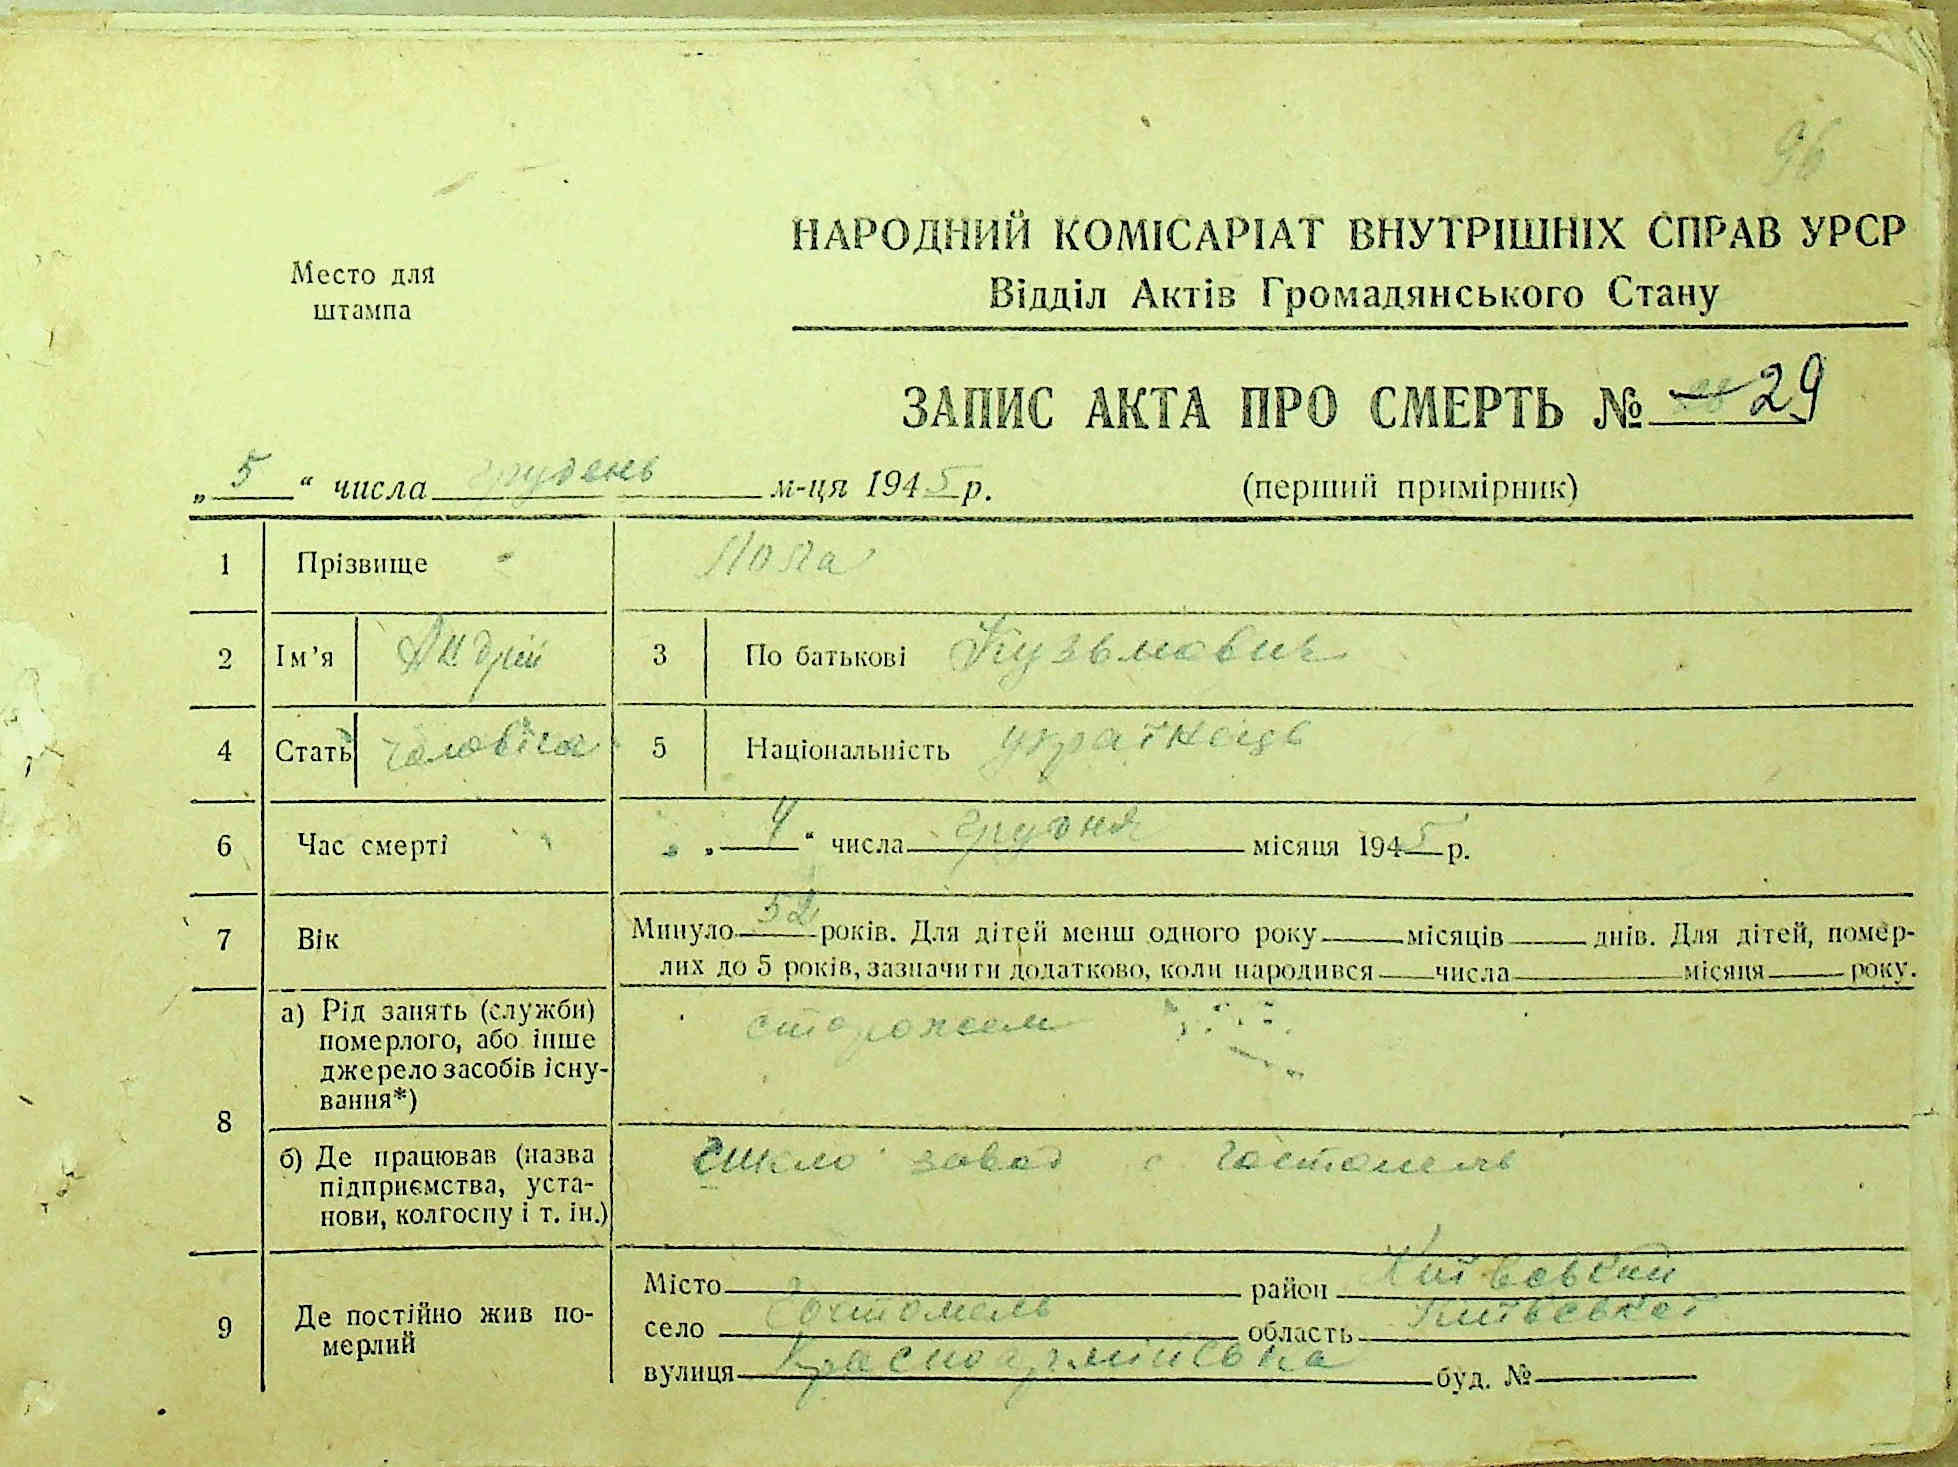 96
НАРОДНИЙ КОМІСАРІАТ ВНУТРІШНІХ СПРАВ УРСР
Место для
штампа
Відділ Актів Громадянського Стану
ЗАПИС АКТА ПРО СМЕРТЬ № 29
„ 5 “ числа грудень м-ця 1945 р. (перший примірник)
1 Прізвище
2 Ім’я Андрій 3 По батькові Кузьмович
4 Стать чоловіча 5 Національність українець
6 Час смерті „ 4 “ числа грудня місяця 1945 р.
7 Вік Минуло 52 років. Для дітей менш одного року місяців днів. Для дітей, помер-
лих до 5 років, зазначити додатково, коли народився числа місяця року.
8 а) Рід занять (служби) сторожем
померлого, або інше
джерело засобів існу-
вання*)
б) Де працював (назва Скло завод Гостомель
підприємства, уста-
нови, колгоспу і т. ін.)
9 Де постійно жив по-
мерлий
Місто район Київський
село Гостомель область Київської
вулиця Красноармійська буд. №